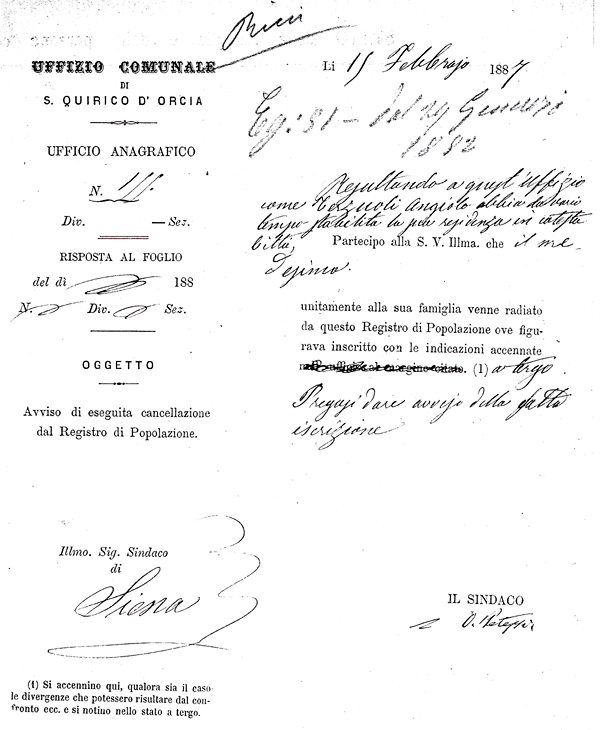 Ricci
UFFIZIO COMUNALE
DI
S. QUIRICO D' ORCIA
UFFICIO ANAGRAFICO
N.
Div. — Sez.
RISPOSTA AL FOGLIO
del dì 188
N. Div. Sez.
OGGETTO
Avviso di eseguita cancellazione
dal Registro di Popolazione.
Illmo. Sig. Sindaco
di
Siena
(1) Si accennino qui, qualora sia il caso
le divergenze che potessero risultare dal con-
fronto ecc. e si notino nello stato a tergo.
Li 15 Febbrajo 1887
Eg: 81 - dal 29
1882
Resultando a quest' Uffizio
come Angiolo abbia da vario
tempo stabilita la sua residenza in cotesta
Città, Partecipo alla S. V. Illma. che il me-
desimo.
unitamente alla sua famiglia venne radiato
da questo Registro di Popolazione ove figu-
rava inscritto con le indicazioni accennate
(1) a tergo.
Pregasi dare avviso della fatta
iscrizione
IL SINDACO